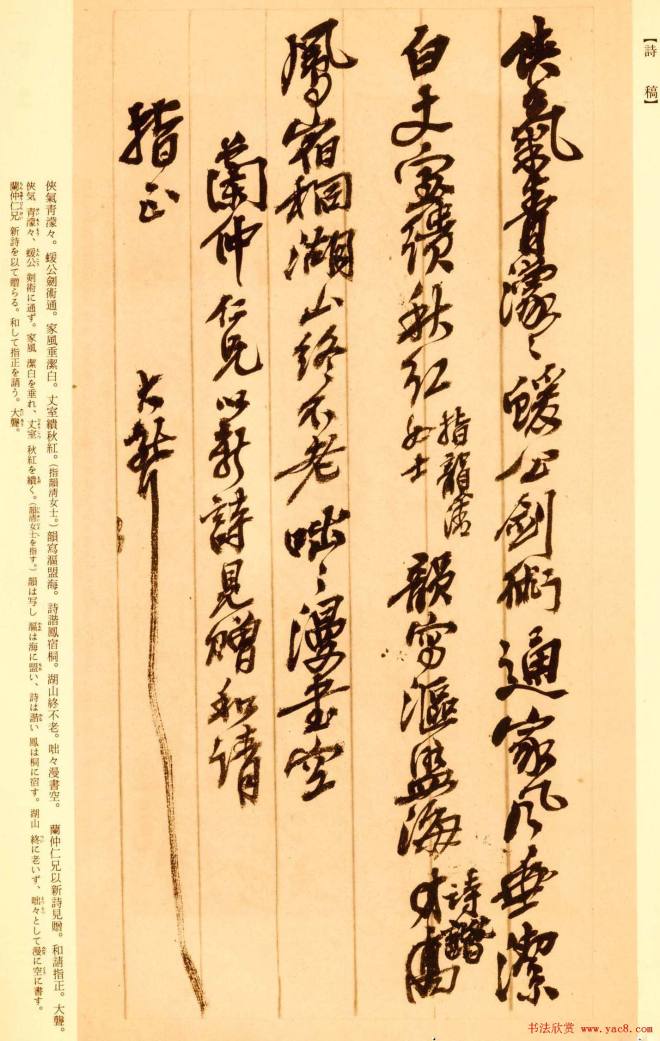 【詩稿】
俠氣青濛〻蝯公劍術通家風垂潔
白丈室績秋紅指韻清女士韻寫漚盟海詩諧
鳳宿桐湖山終不老咄〻漫書空
蘭仲仁兄以新詩見贈和請
指正
大聾
俠氣青濛々。蝯公劍術通。家風垂潔白。丈室績秋紅。(指韻淸女士。)韻寫漚盟海。詩諧鳳宿桐。湖山終不老。咄々漫書空。 蘭仲仁兄以新詩見贈。和請指正。大聾。
俠気 青濛々、蝯公 劍術に通ず。家風 潔白を垂れ、丈室 秋紅を績く。(韻清女士を指す。)韻は写し 漚は海に盟い、詩は諧い 鳳は桐に宿す。湖山 終に老いず、咄々として漫に空に書す。
蘭仲仁兄 新詩を以て贈らる。和して指正を請う。大聾。
书法欣赏 www.yac8.com